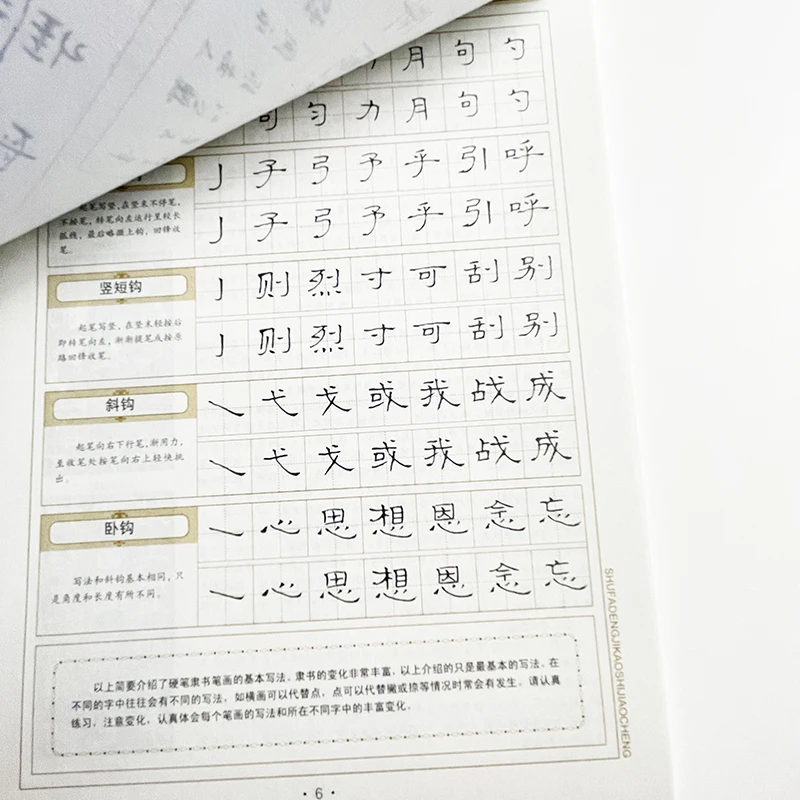 月 句 勺
句 匀 力 月 句 勺
亅 子 弓 予 乎 引 呼
起笔写竖,在竖末不停笔,
不按笔,转笔向左运行呈较长
弧线,最后略微上钩,回锋收
笔。
亅 子 弓 予 乎 引 呼
竖短钩
亅 则 烈 寸 可 刮 别
起笔写竖,在竖末轻按后
即转笔向左,渐渐提笔或按原
路回锋收笔。
亅 则 烈 寸 可 刮 别
斜钩
㇂ 弋 戈 或 我 战 成
起笔向右下行笔,渐用力,
至收笔处按笔向右上轻快挑
出。
㇂ 弋 戈 或 我 战 成
卧钩
㇃ 心 思 想 恩 念 忘
写法和斜钩基本相同,只
是角度和长度有所不同。
㇃ 心 思 想 恩 念 忘
以上简要介绍了硬笔隶书笔画的基本写法。隶书的变化非常丰富,以上介绍的只是最基本的写法。在
不同的字中往往会有不同的写法,如横画可以代替点,点可以代替撇或捺等情况时常会有发生。请认真
练习,注意变化,认真体会每个笔画的写法和所在不同字中的丰富变化。
SHUFADENGJIKAOSHIJIAOCHENG
·6·